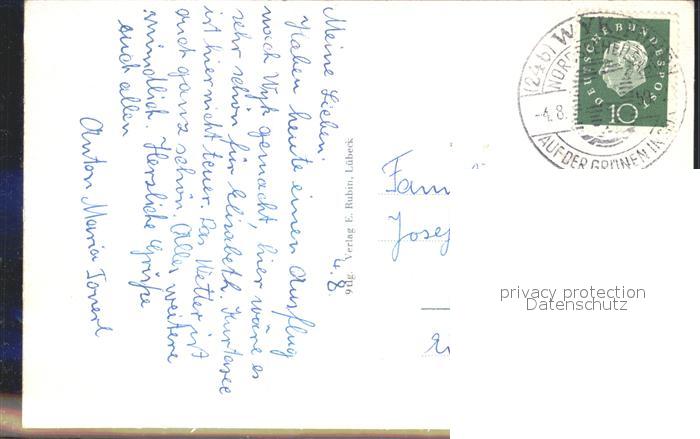 4.8.
Meine Lieben!
Haben heute einen Ausflug
nach Wyk gemacht, hier wäre es
sehr schön für Elisabeth. Kurtaxe
ist hier nicht teuer. Das Wetter ist
auch ganz schön. Alles weitere
mündlich. Herzliche Grüße
euch allen
Anton Maria
Verlag E. Rubin, Lübeck
Fam
Josef
(24b) WYK
NORD
-4.8.
AUF DER GRÜNEN IN
DEUTSCHE BUNDESPOST
10
privacy protection
Datenschutz